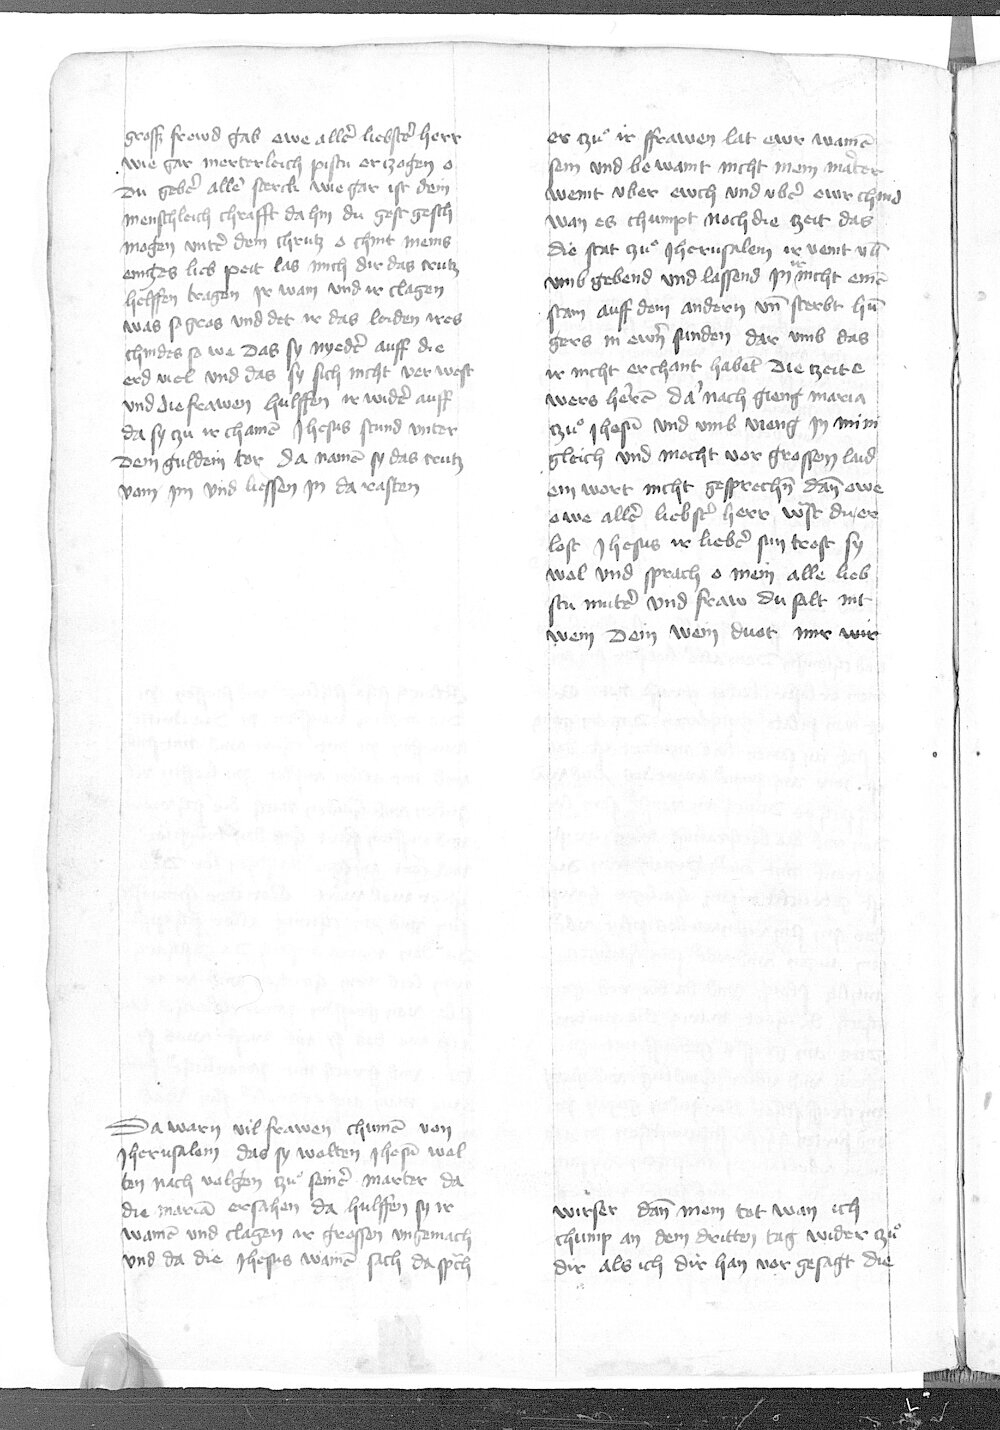 gross frewd gab owe allẽ liebstẽ herr
wie gar merterleich pistu erczogen o
Du gebẽ allẽ sterck wie gar ist dein
menschleich chrafft da hin du gest gesch
mogen untẽ dem chrutz o chint meins
einiges lieb peit las mich dir das crutz
helffen tragen Ir wain und ir clagen
was so gros und det ir das leiden ires
chindes so we Das sy nyedẽ auff die
erd viel und das sy sich nicht ver west
und die frawen hulffen ir widẽ auff
da sy czu ir chamẽ Jhesus stund unter
Dem guldein tor Da namẽ sy das crutz
vom im und liessen in da rasten
Da warn vil frawen chumẽ von
Jherusalem das sy wolten Jhesũ wol
ten nach volgen czuͦ seinẽ marter da
die mariã ersahen da hulffen sy ir
wainẽ und clagen ir grossen ungemach
und da die Jhesus wainẽ sach da sprch
er czuͦ ir ffrawen lat ewr wainẽ
sein und be waint nicht mein marter
weint uber ewch und ubẽ ewr chind
wan es chumpt noch die czeit das
die stat czuͦ Jherusalem ir veint uñ
umb gebend und lassend in ir nicht einẽ
stain auff dem andern uñ sterbt hũ
gers in ewrñ sunden dar umb das
ir nicht erchant habet Die czeit e
wers herẽ da nach gieng maria
czuͦ Jhesũ und umb vieng in mini
gleich und mocht vor grossem laid
ein wort nicht gesprechñ dañ owe
owe allẽ liebstẽ herr wist du er
lost Jhesus ir liebẽ sun trost sy
wol und sprach o mein alle lieb
stu mutẽ und fraw du salt nit
wein Dein wein duot mir wir
wirser dañ mein tot wan ich
chump an dem dritten tag wider czuͦ
dir als ich dir han vor gesagt die